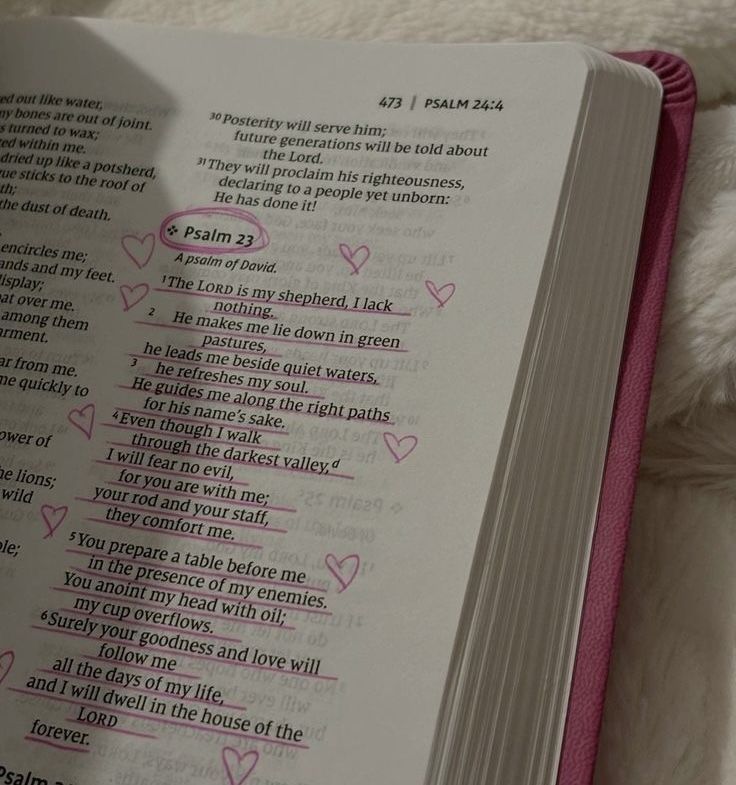 473 | PSALM 24:4
ed out like water,
my bones are out of joint.
s turned to wax;
ed within me.
dried up like a potsherd,
ue sticks to the roof of
th;
the dust of death.
encircles me;
ands and my feet.
isplay;
at over me.
among them
arment.
ar from me.
me quickly to
ower of
he lions;
wild
ole;
30 Posterity will serve him;
future generations will be told about
the Lord.
31 They will proclaim his righteousness,
declaring to a people yet unborn:
He has done it!
Psalm 23
A psalm of David.
1 The LORD is my shepherd, I lack
nothing.
2 He makes me lie down in green
pastures,
he leads me beside quiet waters,
3 he refreshes my soul.
He guides me along the right paths
for his name's sake.
4 Even though I walk
through the darkest valley,d
I will fear no evil,
for you are with me;
your rod and your staff,
they comfort me.
5 You prepare a table before me
in the presence of my enemies.
You anoint my head with oil;
my cup overflows.
6 Surely your goodness and love will
follow me
all the days of my life,
and I will dwell in the house of the
LORD
forever.
Psalm